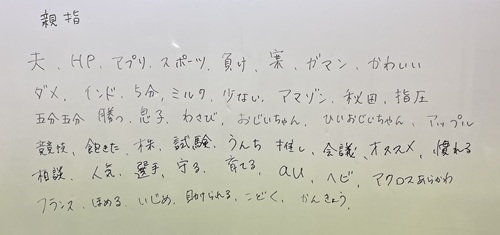 親指
夫、HP、アプリ、スポーツ、負け、寒、ガマン、かわいい
ダメ、インド、5分、ミルク、少ない、アマゾン、秋田、指圧
五分五分、勝つ、息子、わさび、おじいちゃん、ひいおじいちゃん、アップル
競技、飽きた、株、試験、うんち、推し、会議、オススメ、慣れる
相談、人気、選手、守る、育てる、au、ヘビ、アクロスあらかわ
フランス、ほめる、いじめ、助けられる、こどく、かんきょう、